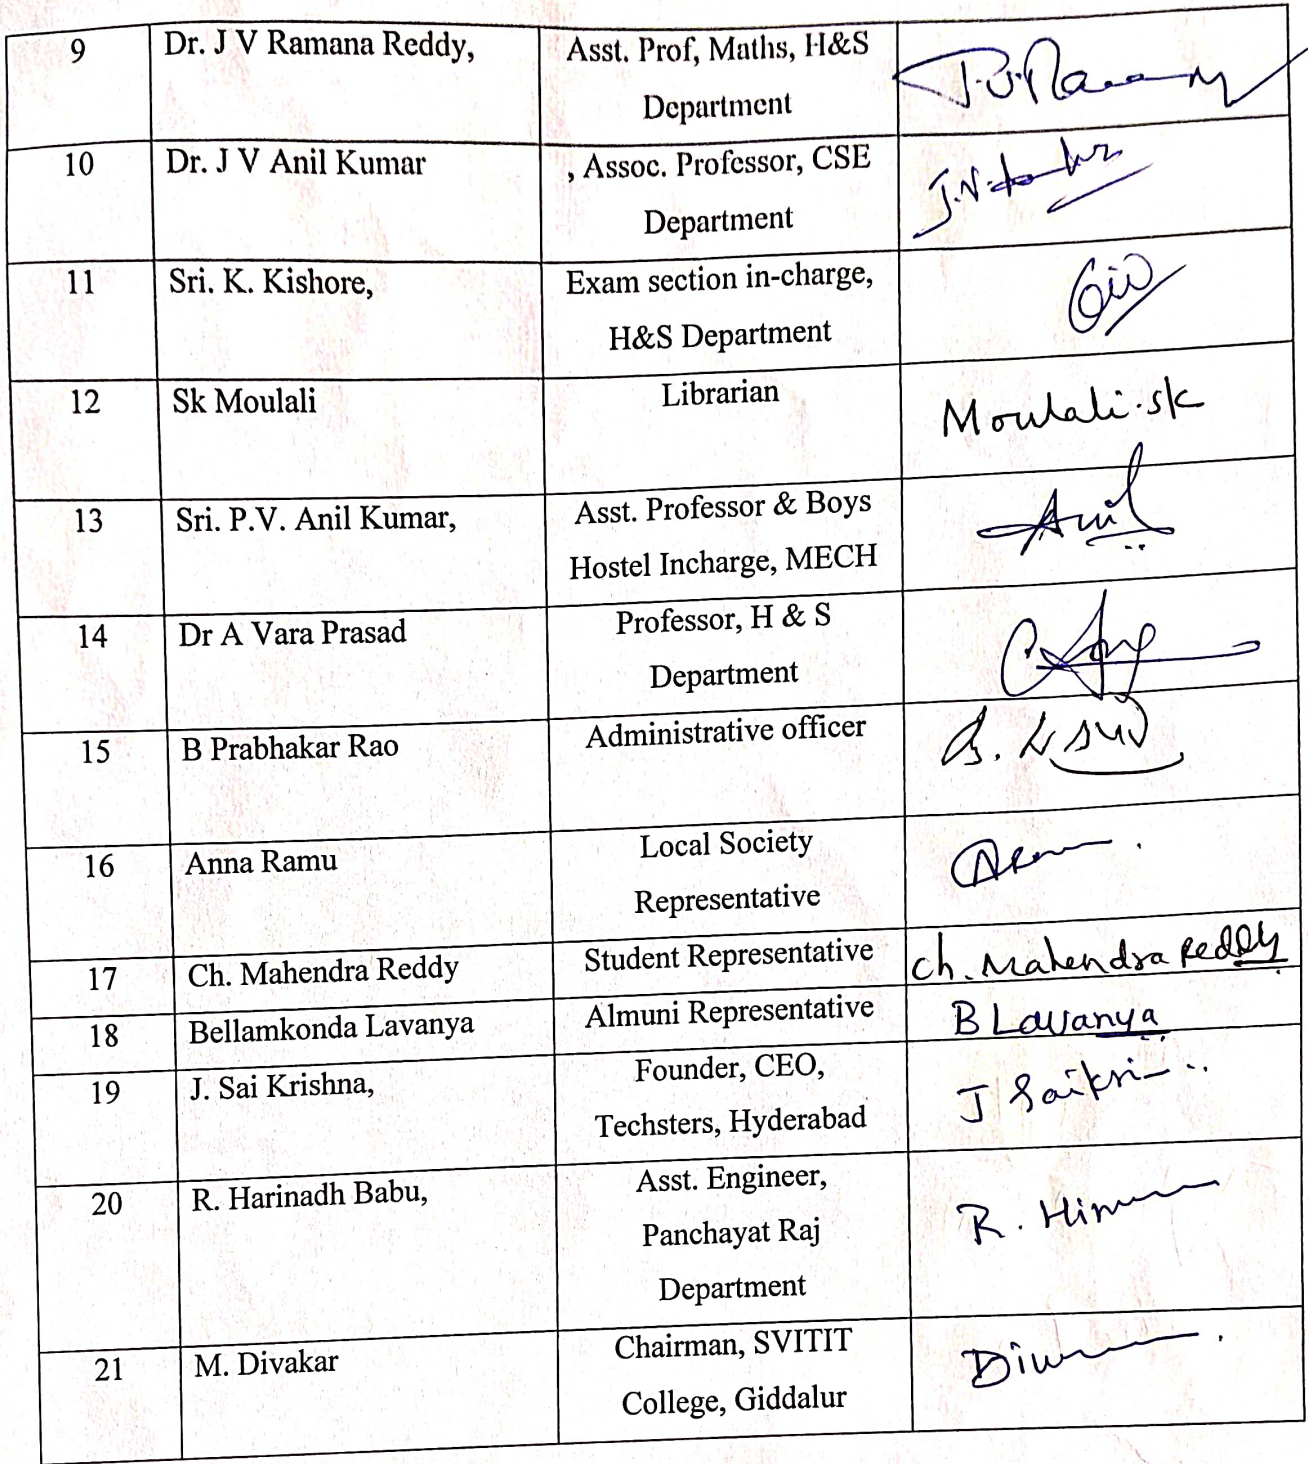 9 Dr. J V Ramana Reddy, Asst. Prof, Maths, H&S
Department
10 Dr. J V Anil Kumar , Assoc. Professor, CSE
Department
11 Sri. K. Kishore, Exam section in-charge,
H&S Department
12 Sk Moulali Librarian Moulali.sk
13 Sri. P.V. Anil Kumar, Asst. Professor & Boys Anil
Hostel Incharge, MECH
14 Dr A Vara Prasad Professor, H & S
Department
15 B Prabhakar Rao Administrative officer
16 Anna Ramu Local Society
Representative
17 Ch. Mahendra Reddy Student Representative ch. Mahendra Reddy
18 Bellamkonda Lavanya Almuni Representative B Lavanya
19 J. Sai Krishna, Founder, CEO,
Techsters, Hyderabad
20 R. Harinadh Babu, Asst. Engineer,
Panchayat Raj
Department
21 M. Divakar Chairman, SVITIT
College, Giddalur